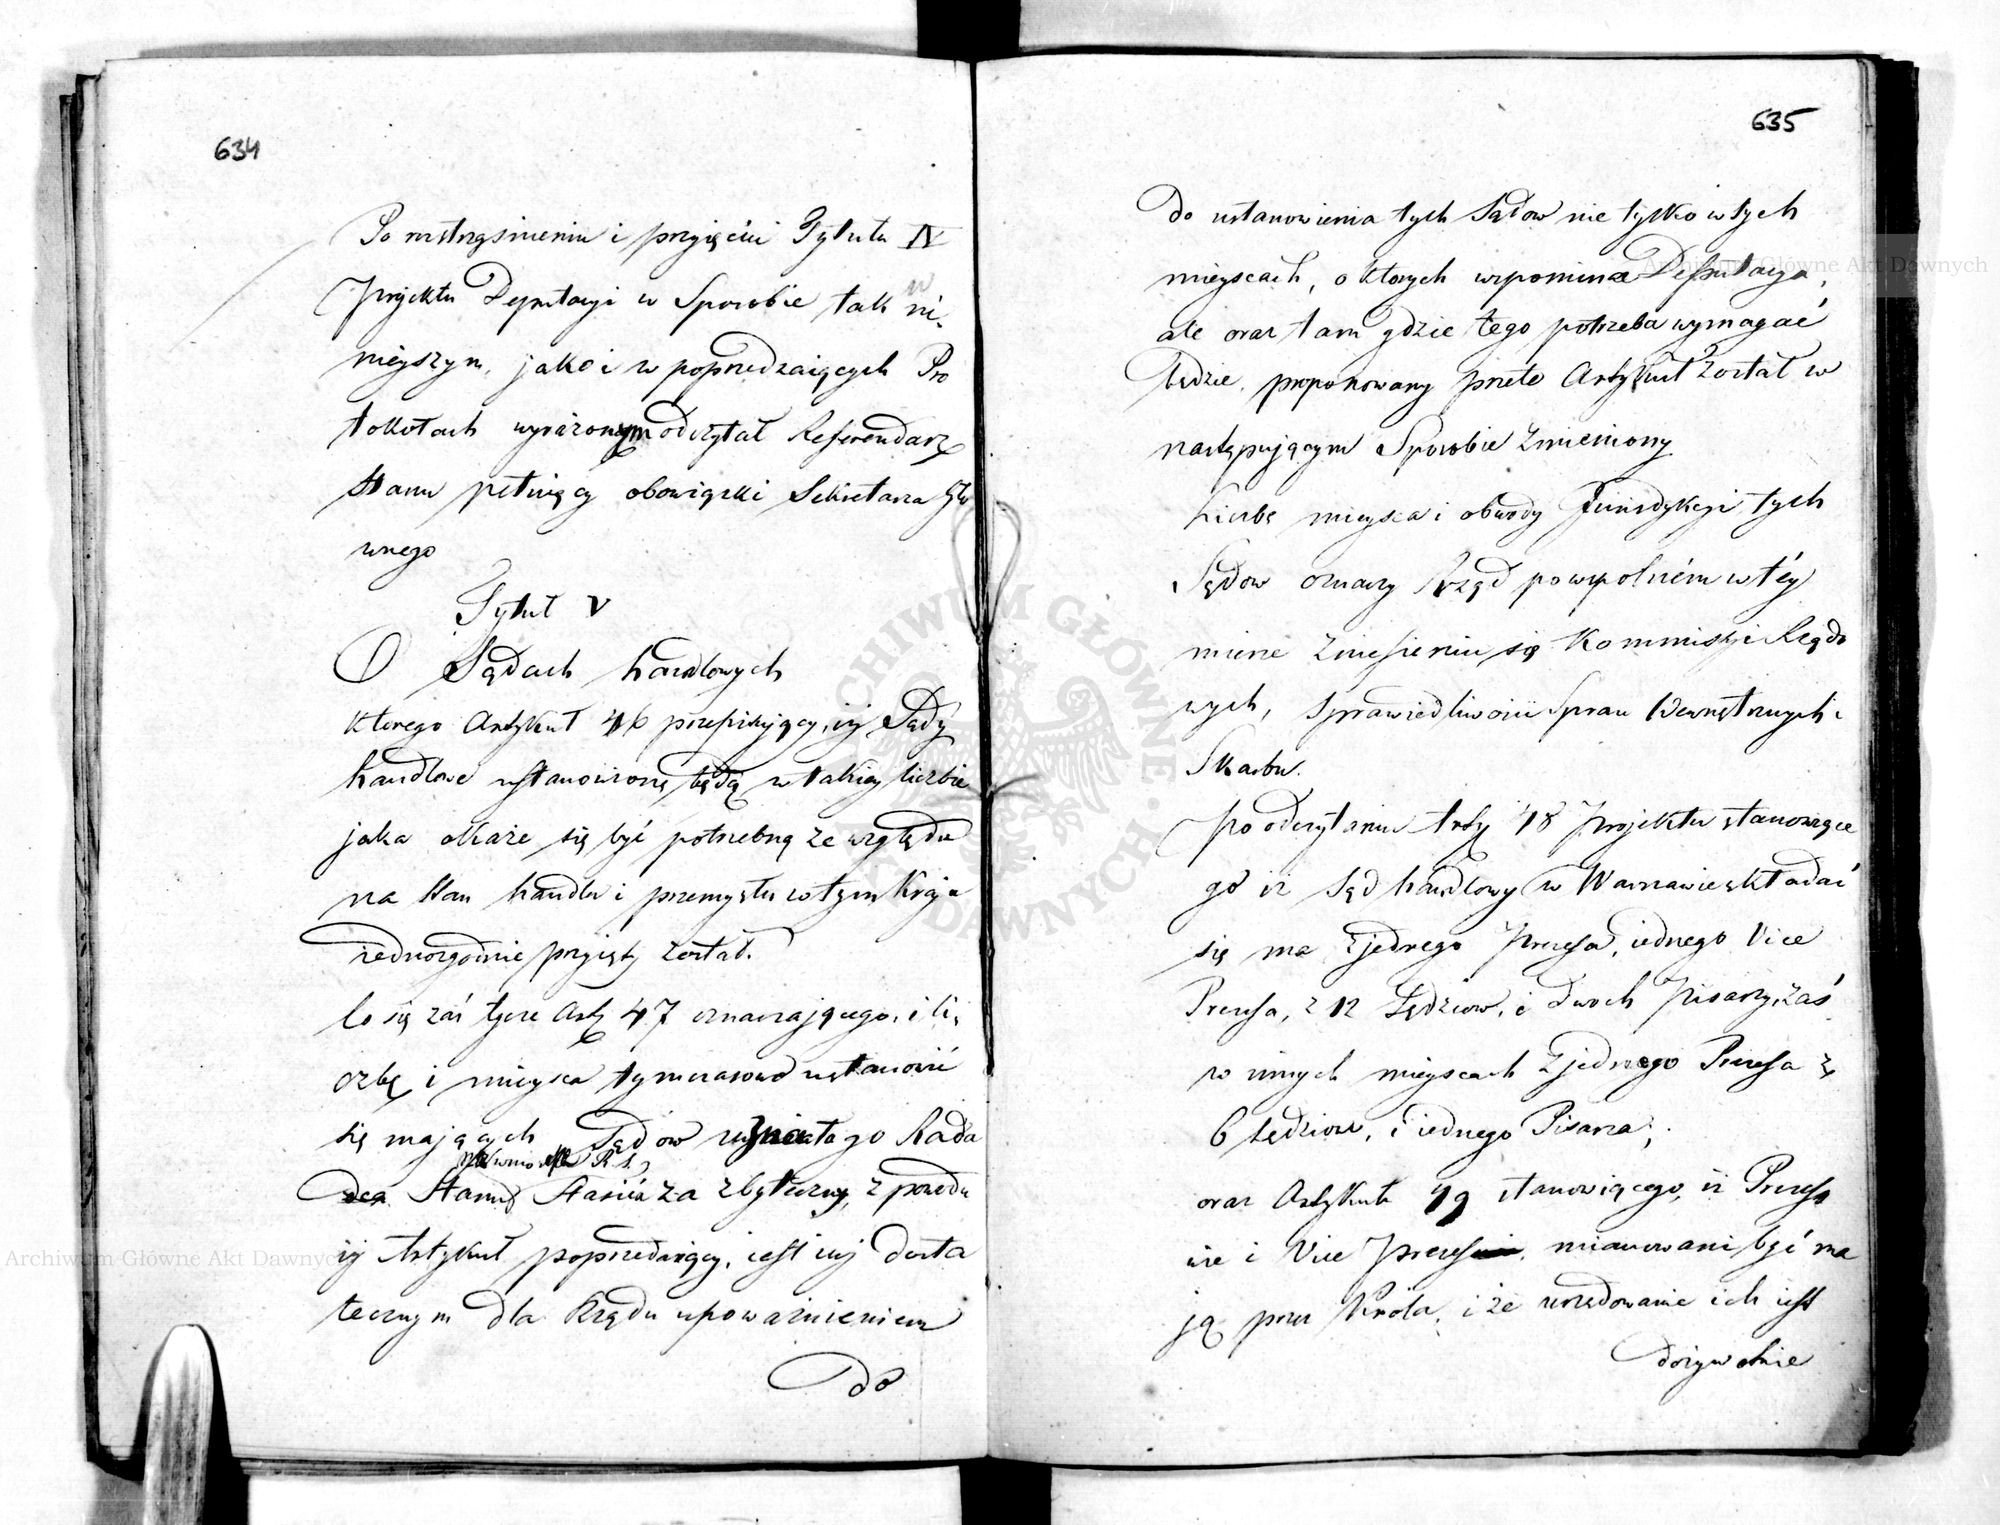 634
Po roztrząśnieniu i przyięciu Tytułu IV
Projektu Deputacyi w Sposobie tak w ni-
nieyszym, jako i w poprzedzaiących Pro
tokołach wyrażonym odczytał Referendarz
Stanu pełniący obowiązki Sekretarza Głó
wnego
Tytuł V
O Sądach handlowych
którego Artykuł 46 przepisujący, iż Sądy
handlowe ustanowione będą w takiey liczbie
jaka okaże się być potrzebną ze względu
na stan handlu i przemysłu w tym Kraju
iednozgodnie przyięty został.
Co się zaś tycze Arty 47 oznaczającego, i li,
czbę i mieysca tymczasowo ustanowić
się mających Sądów uznała go Rada
Stanu na wniosek R. S. Stasica za zbyteczny, z powodu
iż Artykuł poprzedzaiący, iest iuż dosta
tecznym dla Rządu upoważnieniem
do
635
do ustanowienia tych Sądow nie tylko w tych
mieyscach, o ktorych wspomina Deputacya,
ale oraz tam gdzie tego potrzeba wymagać
będzie, proponowany przeto Artykuł został w
następującym Sposobie zmieniony
Liczbę mieysca i obwody Jurisdykcyi tych
Sądow oznaczy Rząd po wspolném w téy
mierze zniesieniu się Kommissyi Rządo
wych, Sprawiedliwości Spraw Wewnętrznych i
Skarbu.
Po odczytaniu Arty 48 Projektu stanowiące
go iż Sąd handlowy w Warszawie składać
się ma z jednego Prezesa, iednego Vice
Prezesa, z 12 Sędziow, i dwoch Pisarzy, zaś
w innych mieyscach z jednego Prezesa z
6 Sędziow, i iednego Pisarza;
oraz Artykułu 49 stanowiącego, iż Prezeso
wie i Vice Prezesi mianowani być ma
ją przez Króla, i że urzędowanie ich iest
dożywotnie